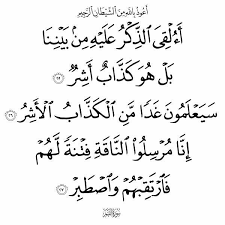 أعوذ بالله من الشيطان الرجيم
أَءُلْقِيَ ٱلذِّكْرُ عَلَيْهِ مِنۢ بَيْنِنَا
بَلْ هُوَ كَذَّابٌ أَشِرٌ ۝٢٥
سَيَعْلَمُونَ غَدًا مَّنِ ٱلْكَذَّابُ ٱلْأَشِرُ ۝٢٦
إِنَّا مُرْسِلُوا۟ ٱلنَّاقَةِ فِتْنَةً لَّهُمْ
فَٱرْتَقِبْهُمْ وَٱصْطَبِرْ ۝٢٧
سورة القمر